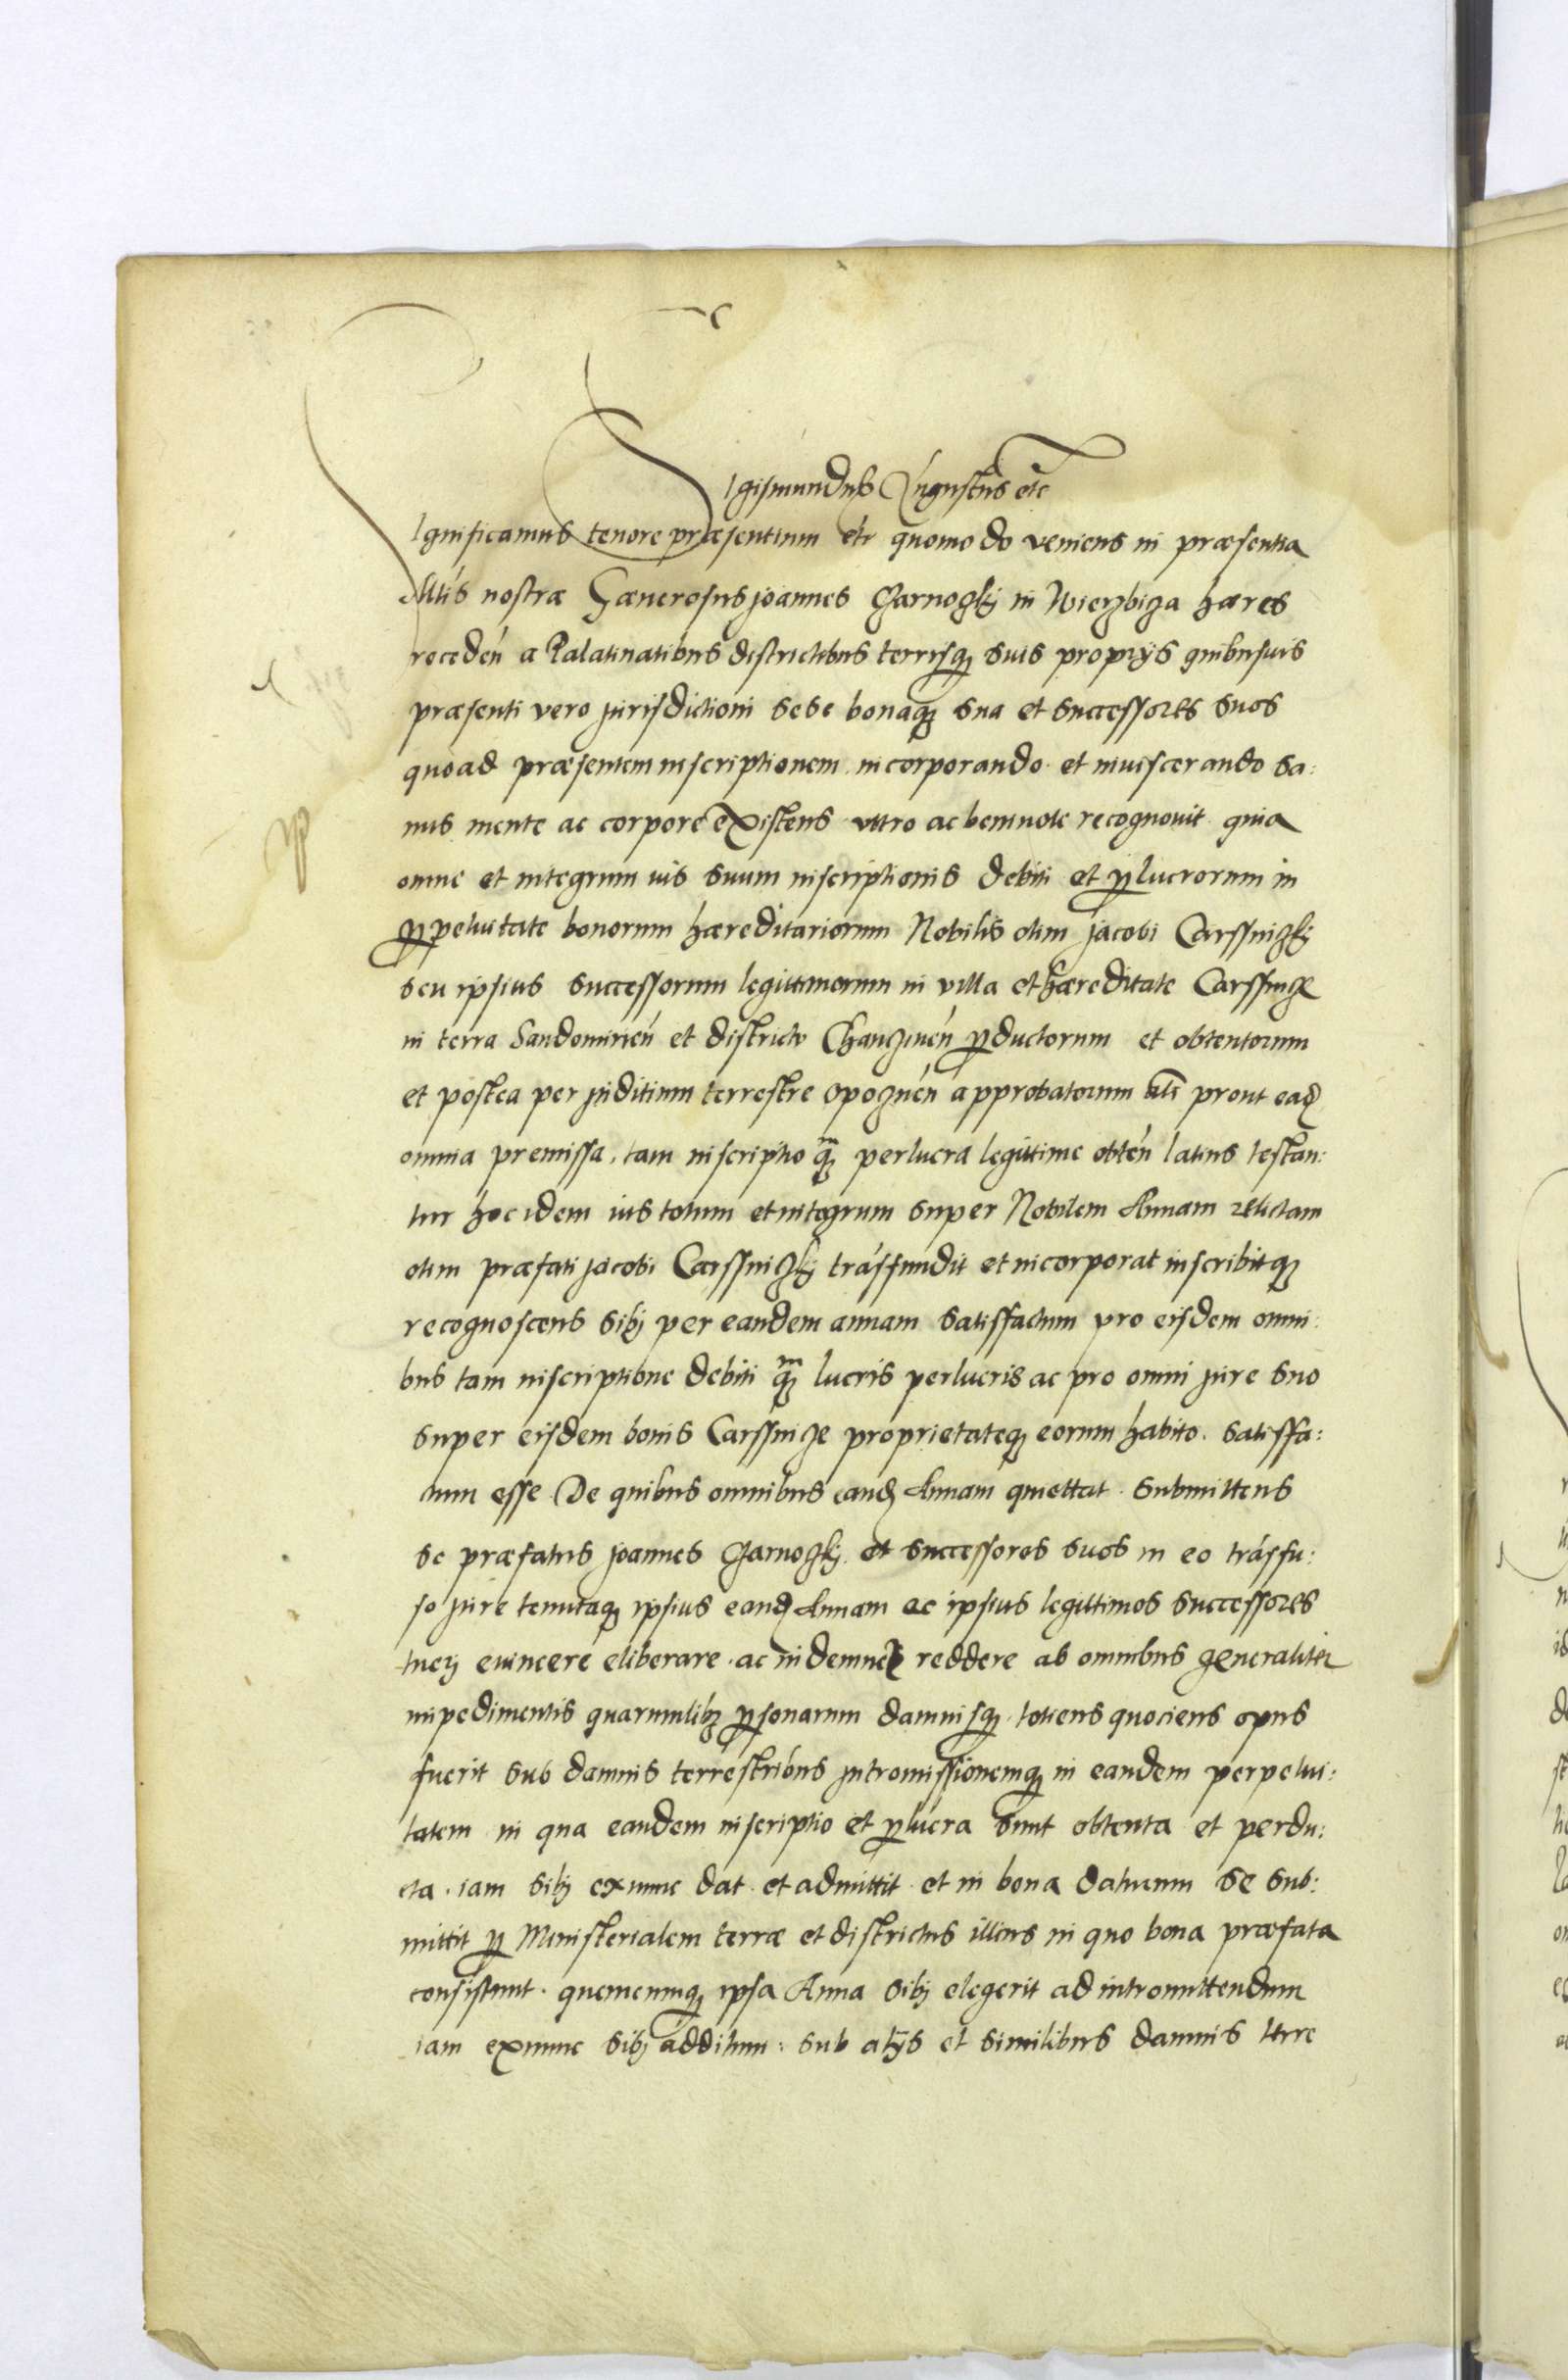 Sigismundus Augustus etc
Significamus tenore præsentium etc quomodo veniens in præsentia
Mtis nostræ Gænerosus Joannes Czarnoczkj in Wierzbicza hæres
receden a Palatinatibus districtibus terrisq suis proprijs quibusuis
præsenti vero jurisdictioni sese bonaq sua et successores suos
quoad præsentem inscriptionem incorporando et inuiscerando sa:
nus mente ac corpore existens vltro ac beniuole recognouit quia
omne et integrum ius suum inscriptionis debiti et plucrorum in
ppetuitate bonorum hæreditariorum Nobilis olim Jacobi Carssniczkj
seu ipsius successorum legittimorum in villa et hæreditate Carssnicze
in terra Sandomirien et districtu Chanczinen pductorum et obtentorum
et postea per juditium terrestre opoznen approbatorum prout ead
omnia premissa, tam inscriptio qm perlucra legittime obten latius testan:
tur hoc idem ius totum et integrum super Nobilem Annam relictam
olim præfati Jacobi Carssniczkj trasfundit et incorporat inscribitq
recognoscens sibj per eandem annam satisfactum pro eisdem omni:
bus tam inscriptione debiti qm lucris perlucris ac pro omni jure suo
super eisdem bonis Carssnicze proprietateq eorum habito. satisfa:
ctum esse De quibus omnibus eand Annam quiettat submittens
se præfatus Joannes Czarnoczkj et successores suos in eo trasfu:
so jure tenutaq ipsius eand Annam ac ipsius legittimos successores
tuerj euincere eliberare ac indemnes reddere ab omnibus generaliter
impedimentis quarumlibz psonarum damnisq totiens quociens opus
fuerit sub damnis terrestribus intromissionemq in eandem perpetui:
tatem in qua eandem inscriptio et plucra sunt obtenta et perdu:
cta. iam sibj exnunc dat et admittit et in bona daturum se sub:
mittit p Ministerialem terræ et districtus illius in quo bona præfata
consistunt. quemcumq ipsa Anna sibj elegerit ad intromittendum
iam exnunc sibj additum: sub alijs et similibus damnis terre